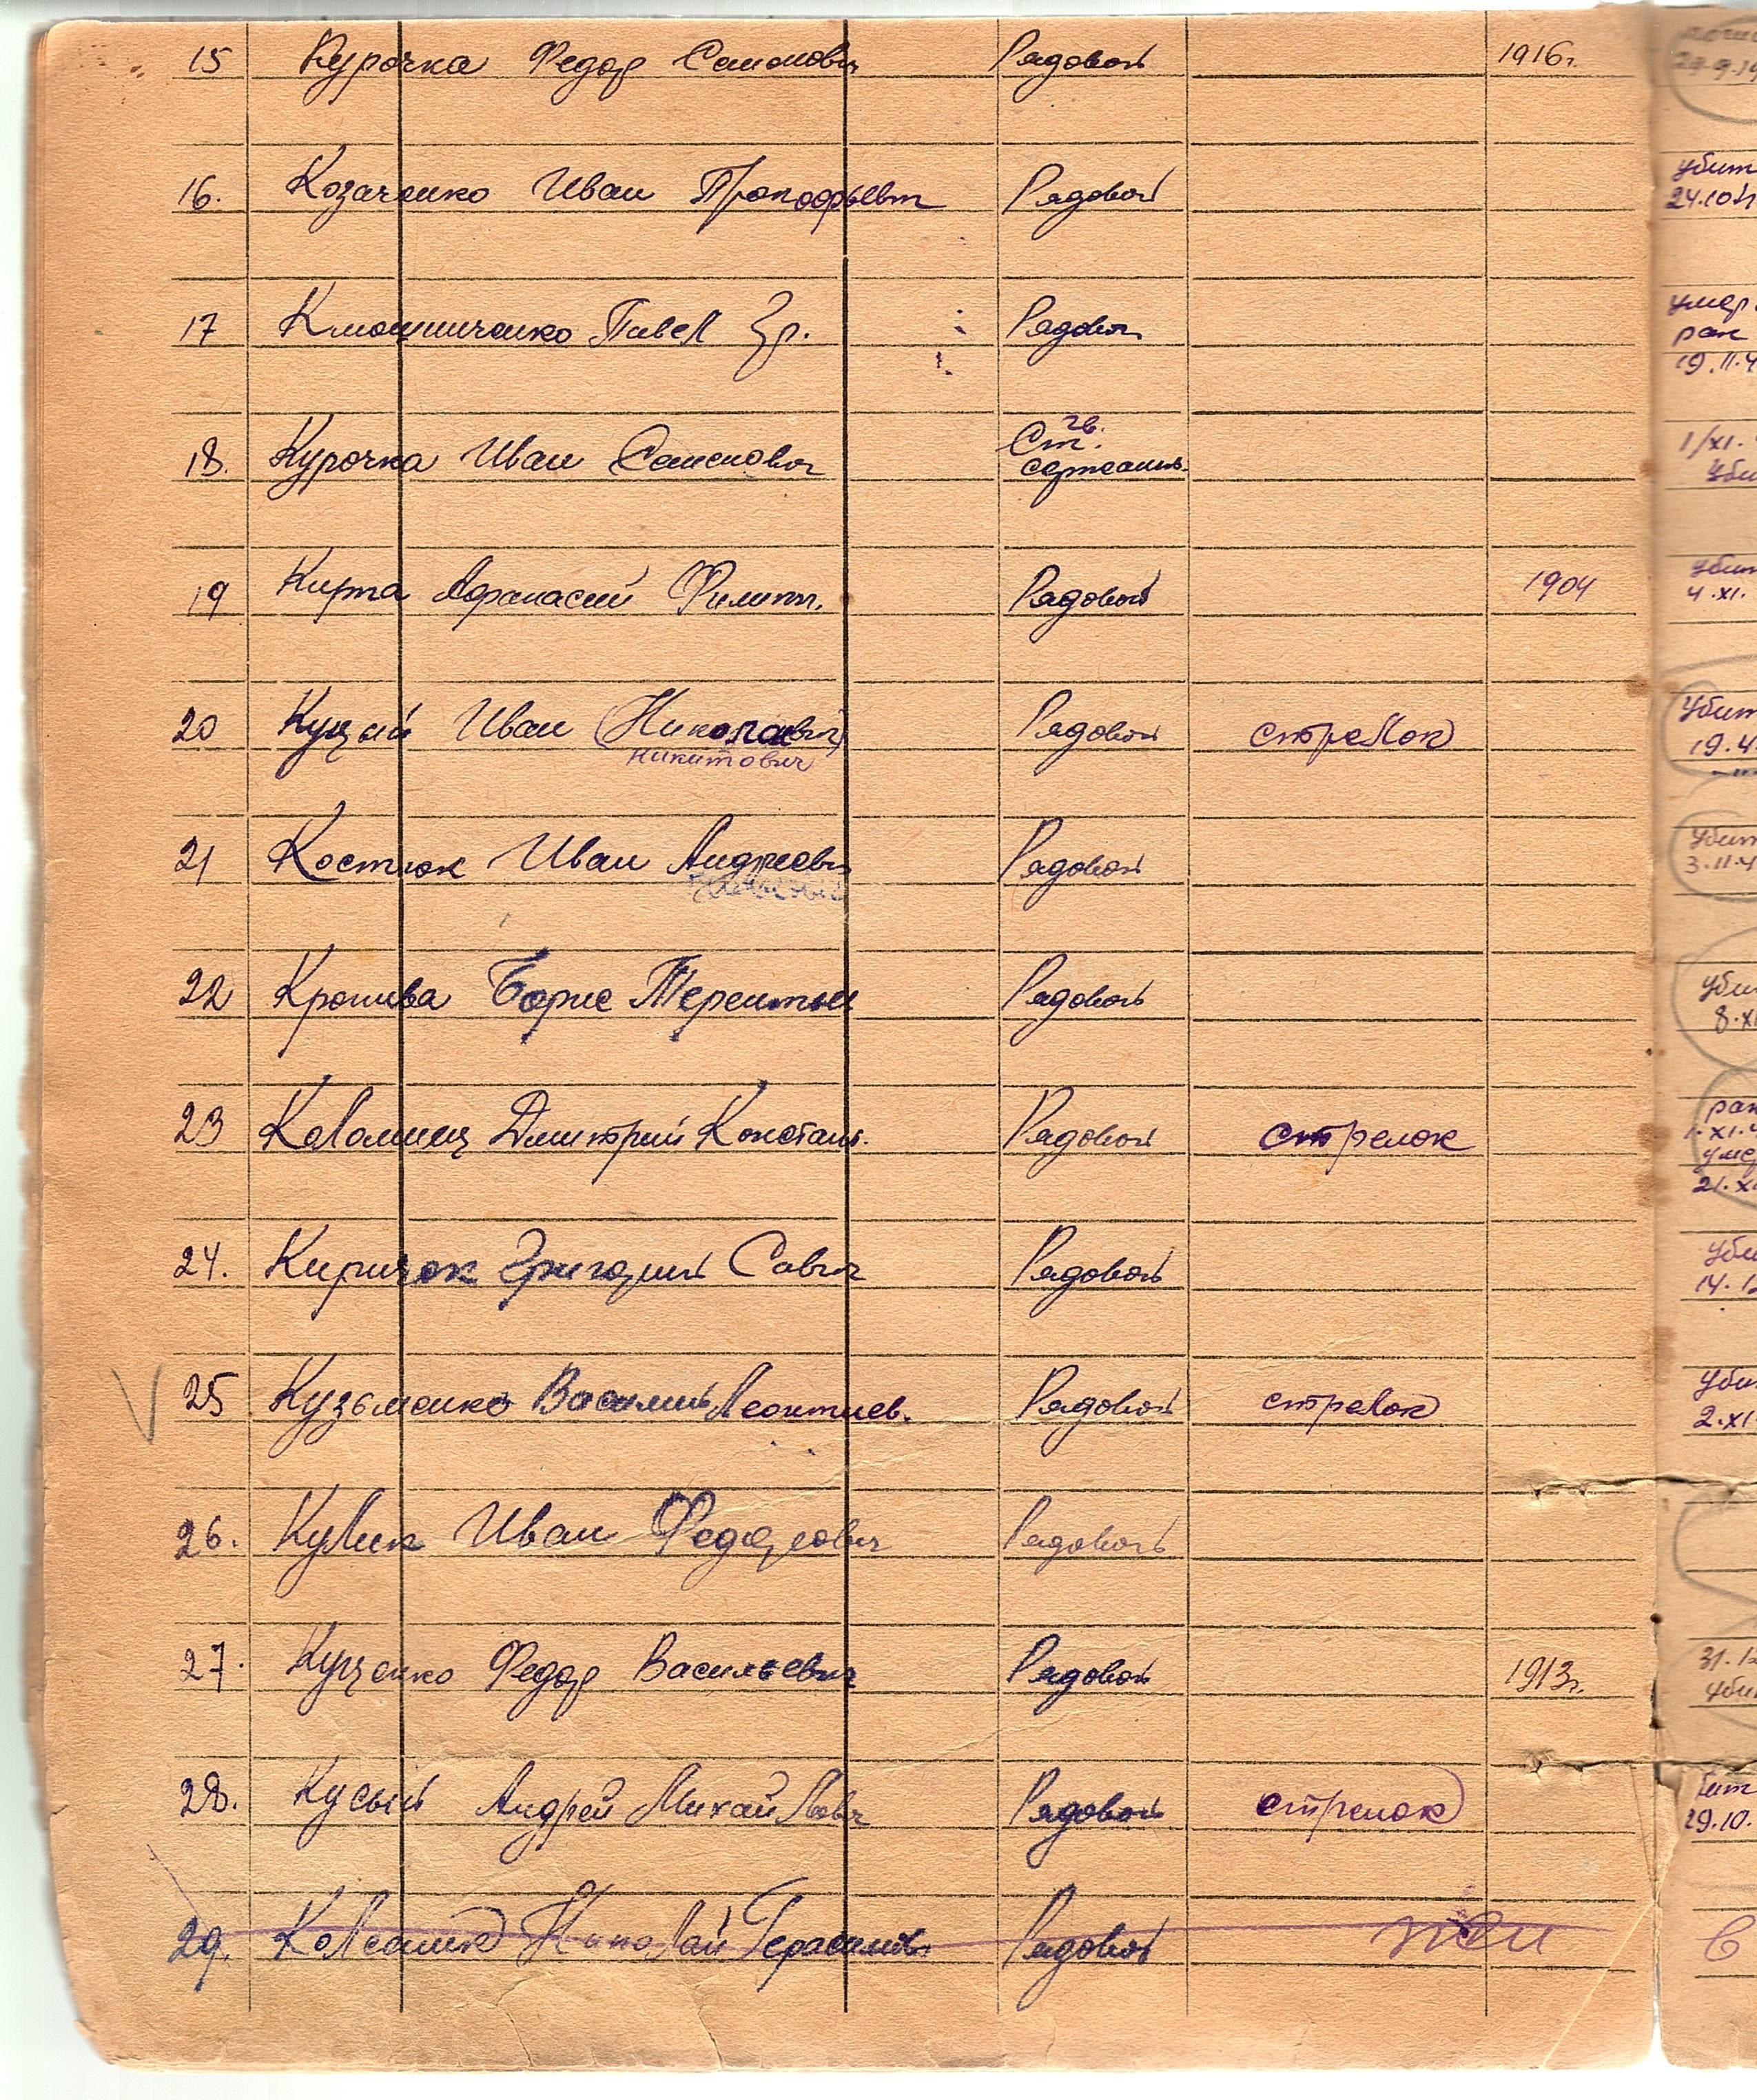 15 Курочка Федор Семенович Рядовой 1916г.
16. Козаченко Иван Прокофьевич Рядовой
убит
24.10
17 Клюшниченко Павел Гр. Рядовой
умер.
ран
19.11.4
18. Курочка Иван Семенович гв. Ст. сержант
1/XI.
19 Кирта Афанасий Филипп. Рядовой 1904
4.XI.
20 Куцый Иван (Николаевич) Рядовой стрелок
Никитович
убит
19.4
21 Костюк Иван Андреевич Рядовой
убит
3.11.4
22 Кропива Борис Терентьев Рядовой
8.XI
23 Коломиец Дмитрий Констант. Рядовой стрелок
ран
21.X
24. Киричок Григорий Савич Рядовой
14.12
25 Кузьменко Василий Леонтиев. Рядовой стрелок
2.XI
26. Кулик Иван Федорович Рядовой
27. Куценко Федор Васильевич Рядовой 1913г.
31.12
28. Кусый Андрей Михайлович Рядовой стрелок
29.10.
29. Колесник Николай Герасимов. Рядовой жив
в